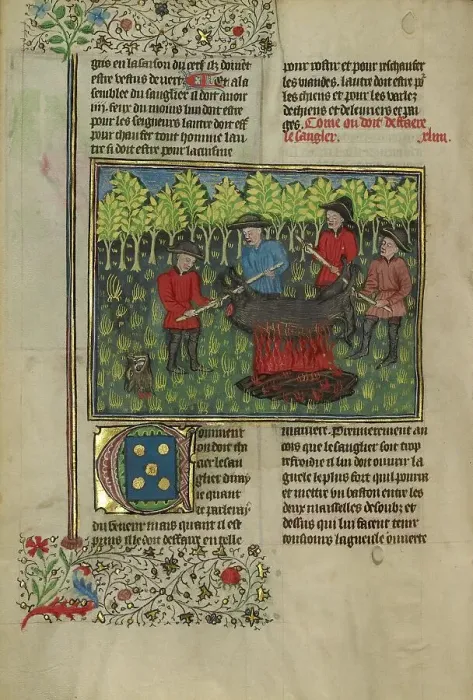 gns en la saison du cerf ilz doivēt
estre vestus de vert. Et a la
semblee du sanglier il doit avoir
iiij. feux du moins lun doit estre
pour les seigneurs lautre doit estre
pour chaufer tout homme lau
tre si doit estre pour la cuisine
pour rostir et pour reschaufer
les viandes. lautre doit estre pour
les chiens et pour les varlez
de chiens et de levriers et pa
ges. Cōme on doit deffaire
le sanglier. .xliiij.
Comment
on doit
le san
glier
quant
du venent mais quant il est
prins ille doit deffaire en telle
maniere. Premierement an
cois que le sanglier soit trop
refroidie il lui doit ouvrir la
guele le plus fort quil pourra
et mettre un baston entre les
deux maisselles dessoubz et
dessus qui lui facent tenir
tousiours la gueule ouverte